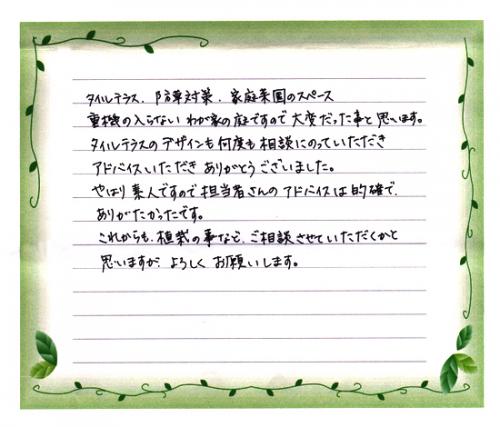 タイルテラス、防草対策、家庭菜園のスペース
重機の入らない わが家の庭ですので 大変だった事と思います。
タイルテラスのデザインも何度も相談にのっていただき
アドバイスいただき ありがとうございました。
やはり 素人ですので 担当者さんの アドバイスは 的確で、
ありがたかったです。
これからも、植栽の事など、ご相談させていただくかと
思いますが、よろしく お願いします。